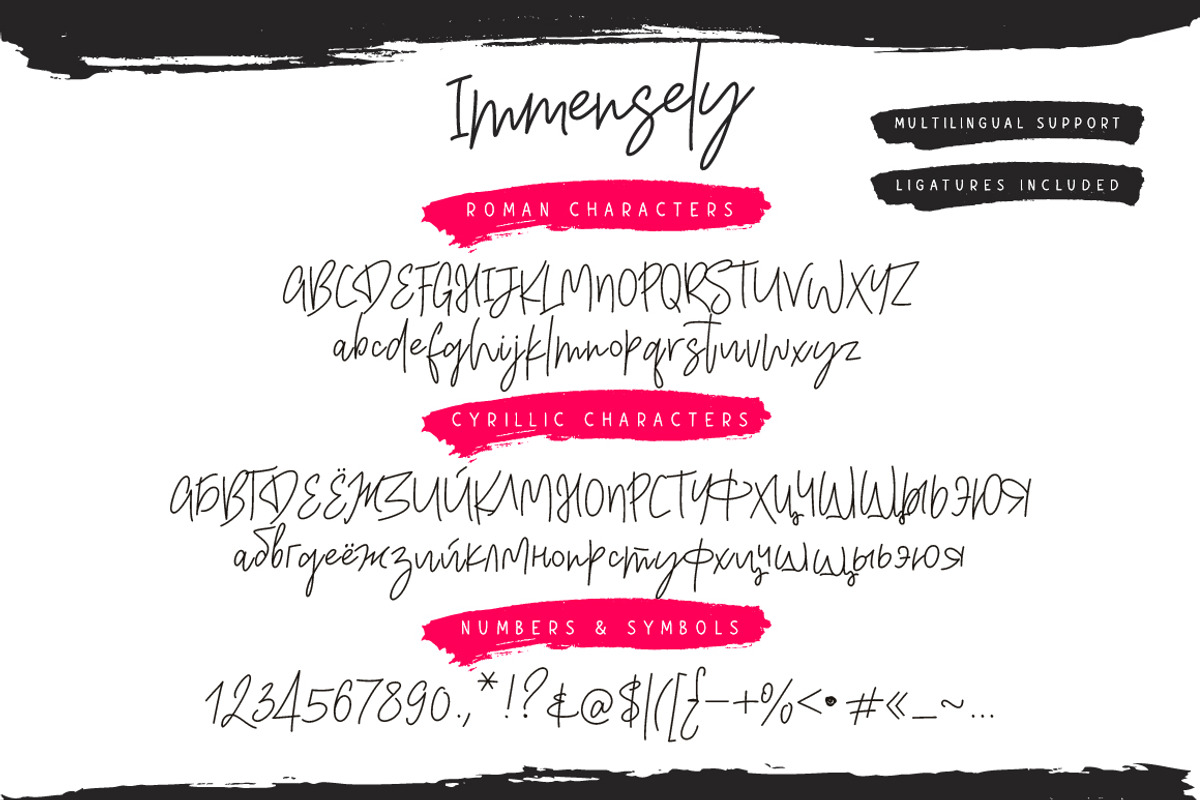 Immensely
MULTILINGUAL SUPPORT
LIGATURES INCLUDED
ROMAN CHARACTERS
ABCDEFGHIJKLMNOPQRSTUVWXYZ
abcdefghijklmnopqrstuvwxyz
CYRILLIC CHARACTERS
АБВГДЕЁЖЗИЙКЛМНОПРСТУФХЦЧШЩЫЬЭЮЯ
абвгдеёжзийклмнопрстуфхцчшщыьэюя
NUMBERS & SYMBOLS
1234567890.,*!?&@$|([{-+%<•#«_~...